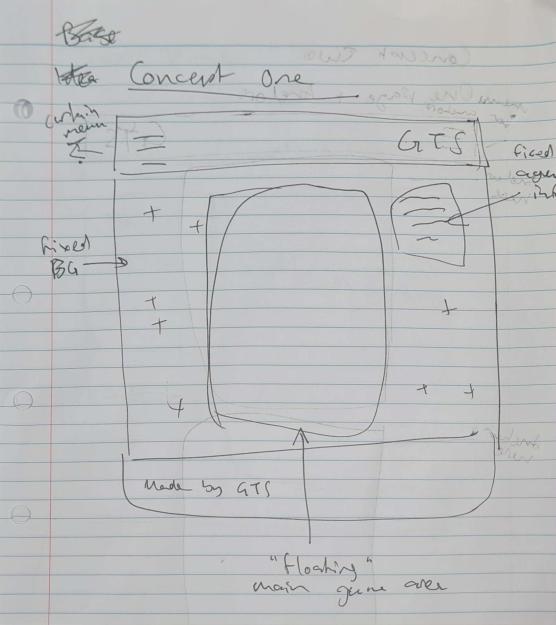 Base
Idea Concept One
curtain
menu
?
GTS
fixed
fixed
BG
Made by GTS
"floating"
main game area